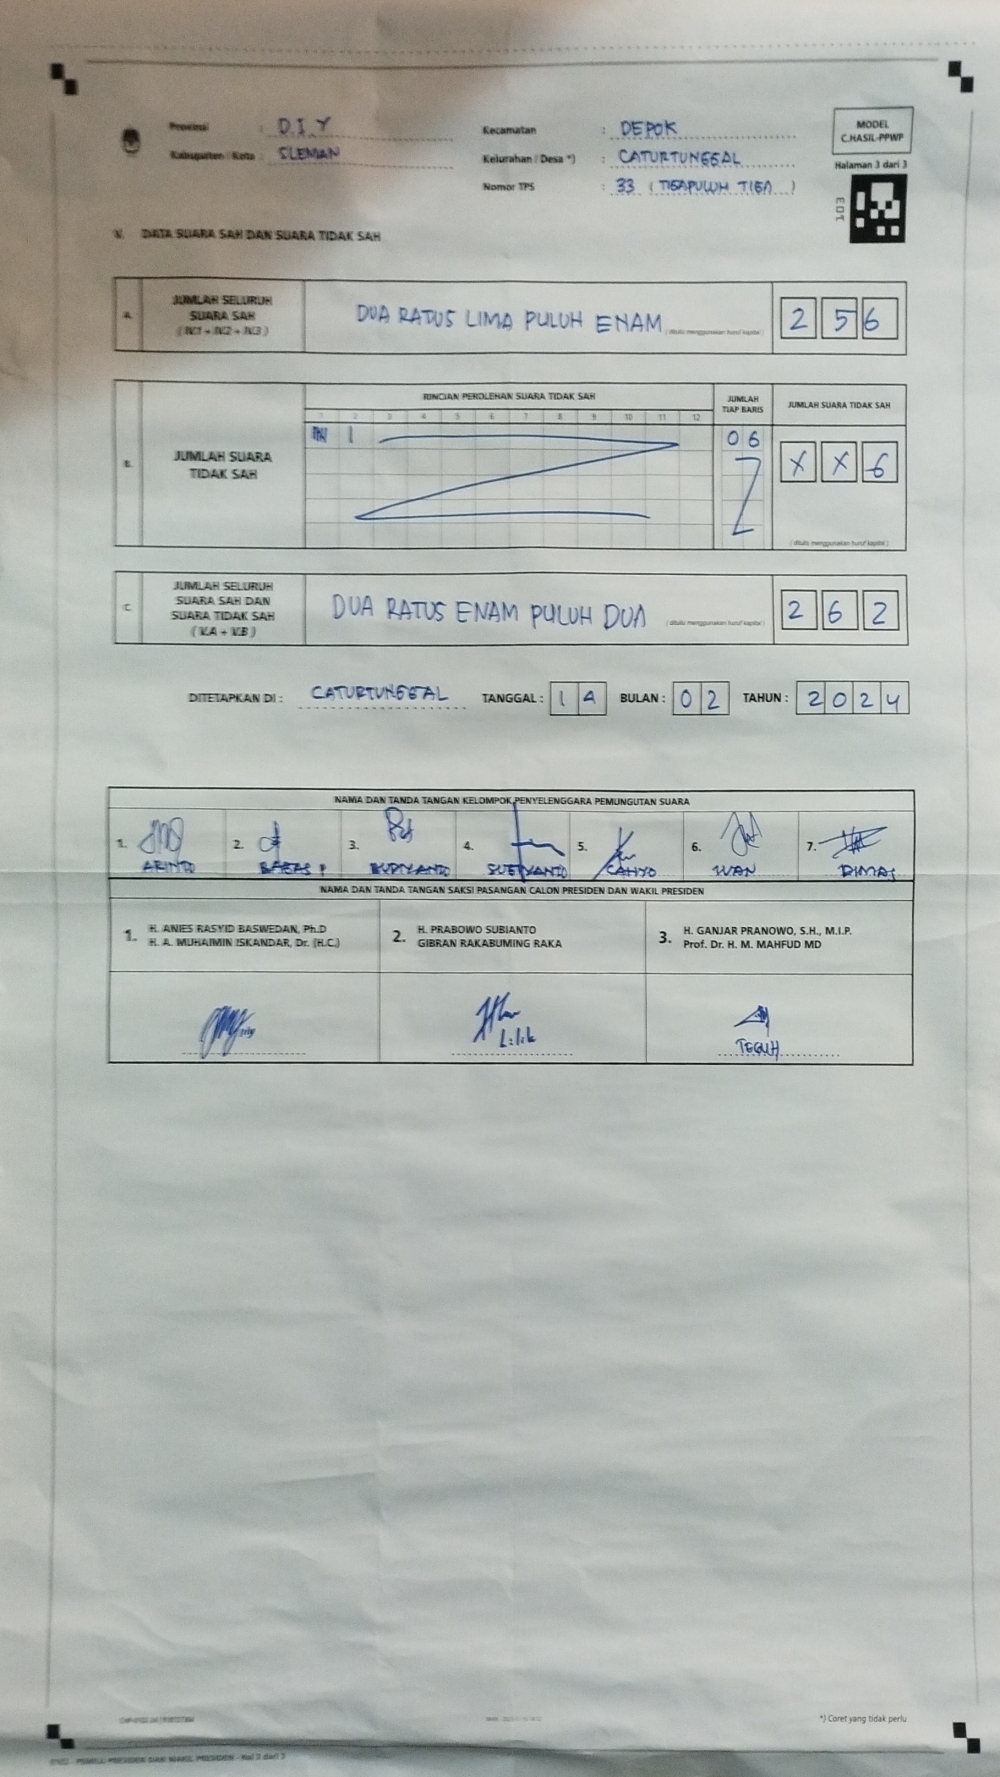 Provinsi : D.I.Y
Kabupaten / Kota : SLEMAN
Kecamatan : DEPOK
Kelurahan / Desa *) : CATURTUNGGAL
Nomor TPS : 33 ( TIGAPULUH TIGA )
MODEL
C.HASIL-PPWP
Halaman 3 dari 3
V. DATA SUARA SAH DAN SUARA TIDAK SAH
A. JUMLAH SELURUH
SUARA SAH
( IV.1 + IV.2 + IV.3 )
DUA RATUS LIMA PULUH ENAM
( ditulis menggunakan huruf kapital )
2 5 6
B. JUMLAH SUARA
TIDAK SAH
RINCIAN PEROLEHAN SUARA TIDAK SAH
1 2 3 4 5 6 7 8 9 10 11 12
JUMLAH
TIAP BARIS
06
JUMLAH SUARA TIDAK SAH
X X 6
( ditulis menggunakan huruf kapital )
C. JUMLAH SELURUH
SUARA SAH DAN
SUARA TIDAK SAH
( V.A + V.B )
DUA RATUS ENAM PULUH DUA
( ditulis menggunakan huruf kapital )
2 6 2
DITETAPKAN DI : CATURTUNGGAL TANGGAL : 14 BULAN : 02 TAHUN : 2024
NAMA DAN TANDA TANGAN KELOMPOK PENYELENGGARA PEMUNGUTAN SUARA
1. 2. 3. 4. 5. 6. 7.
ARINTO CAHYO IWAN DIMAS
NAMA DAN TANDA TANGAN SAKSI PASANGAN CALON PRESIDEN DAN WAKIL PRESIDEN
1. H. ANIES RASYID BASWEDAN, Ph.D
H. A. MUHAIMIN ISKANDAR, Dr. (H.C.)
2. H. PRABOWO SUBIANTO
GIBRAN RAKABUMING RAKA
3. H. GANJAR PRANOWO, S.H., M.I.P.
Prof. Dr. H. M. MAHFUD MD
Lilik
TEGUH
*) Coret yang tidak perlu
PEMILU PRESIDEN DAN WAKIL PRESIDEN - Hal 3 dari 3